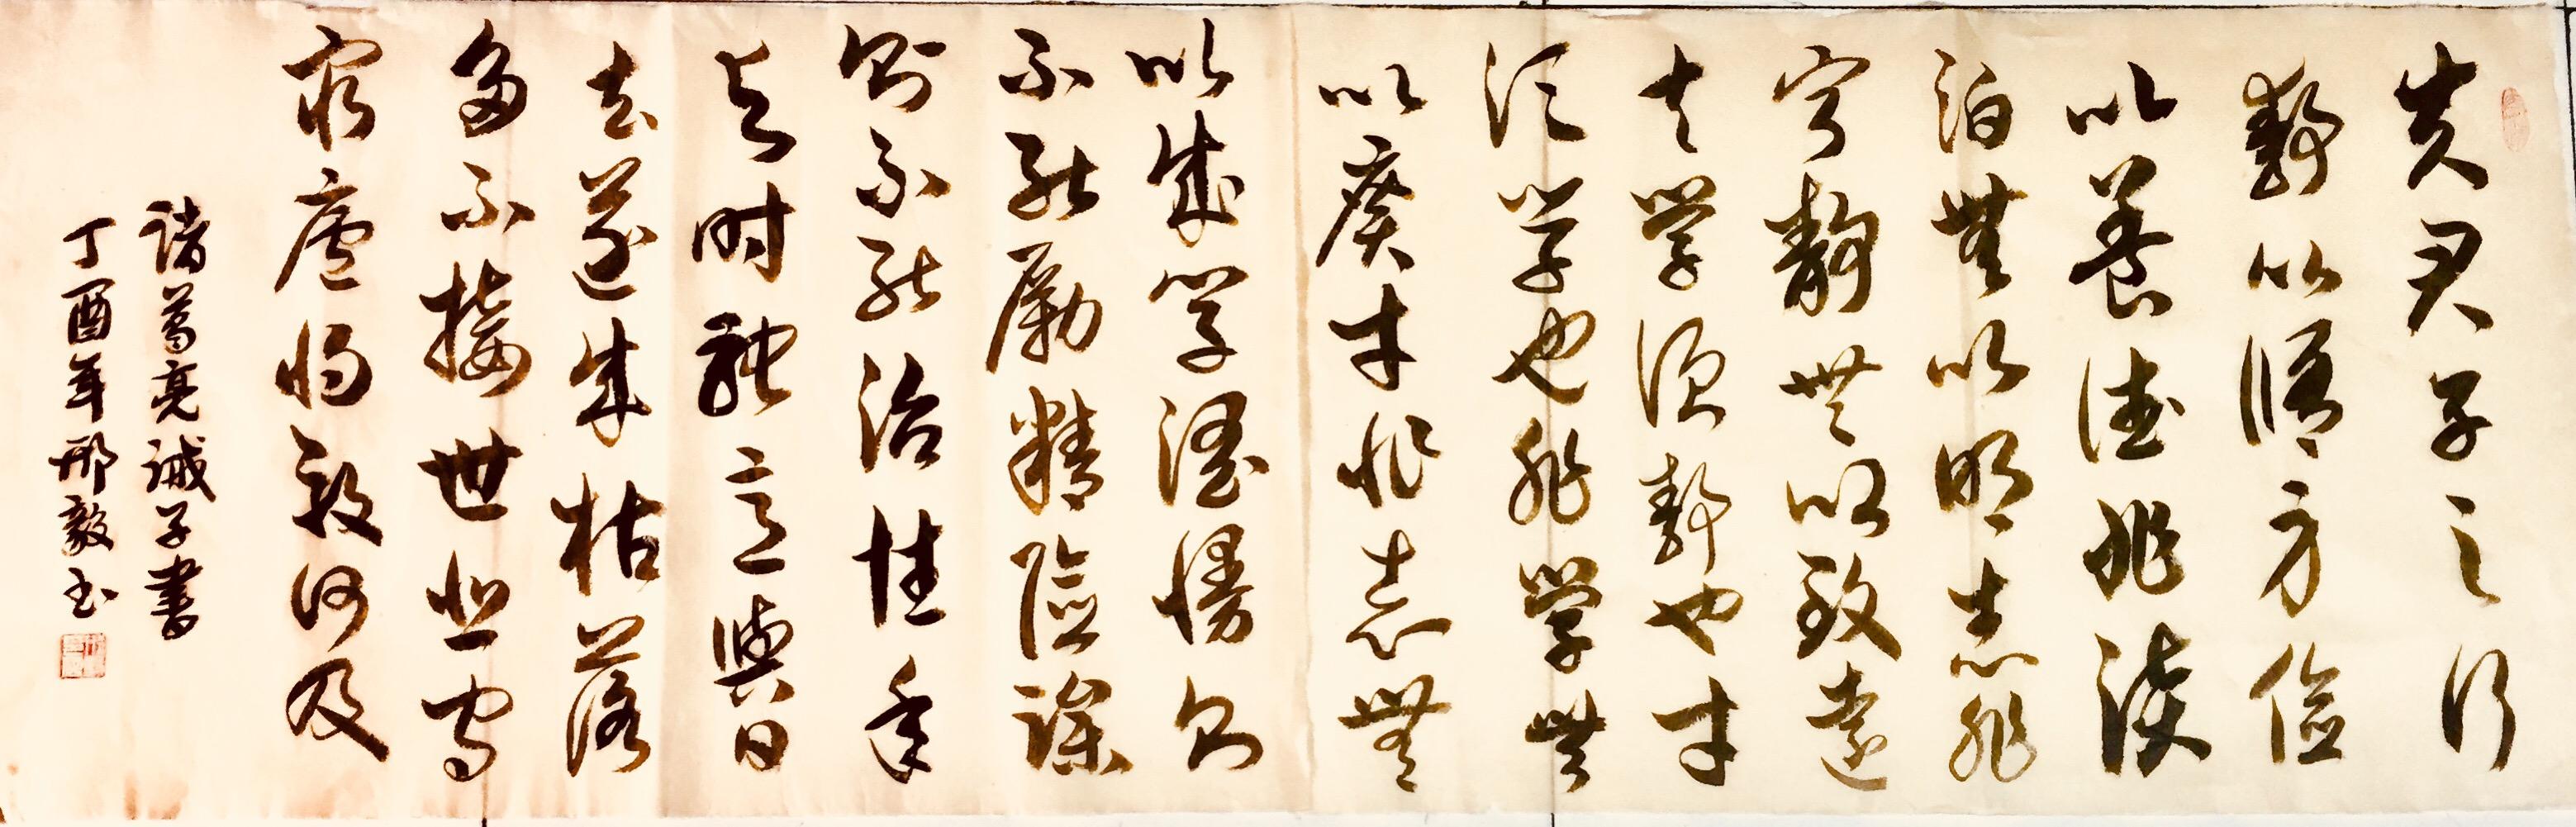 夫君子之行
靜以脩身儉
以養德非淡
泊無以明志非
寧靜無以致遠
夫學須靜也才
須學也非學無
以廣才非志無
以成學慆慢則
不能勵精險躁
則不能治性年
與时馳意與日
去遂成枯落
多不接世悲守
窮廬将復何及
諸葛亮誡子書
丁酉年邢毅书